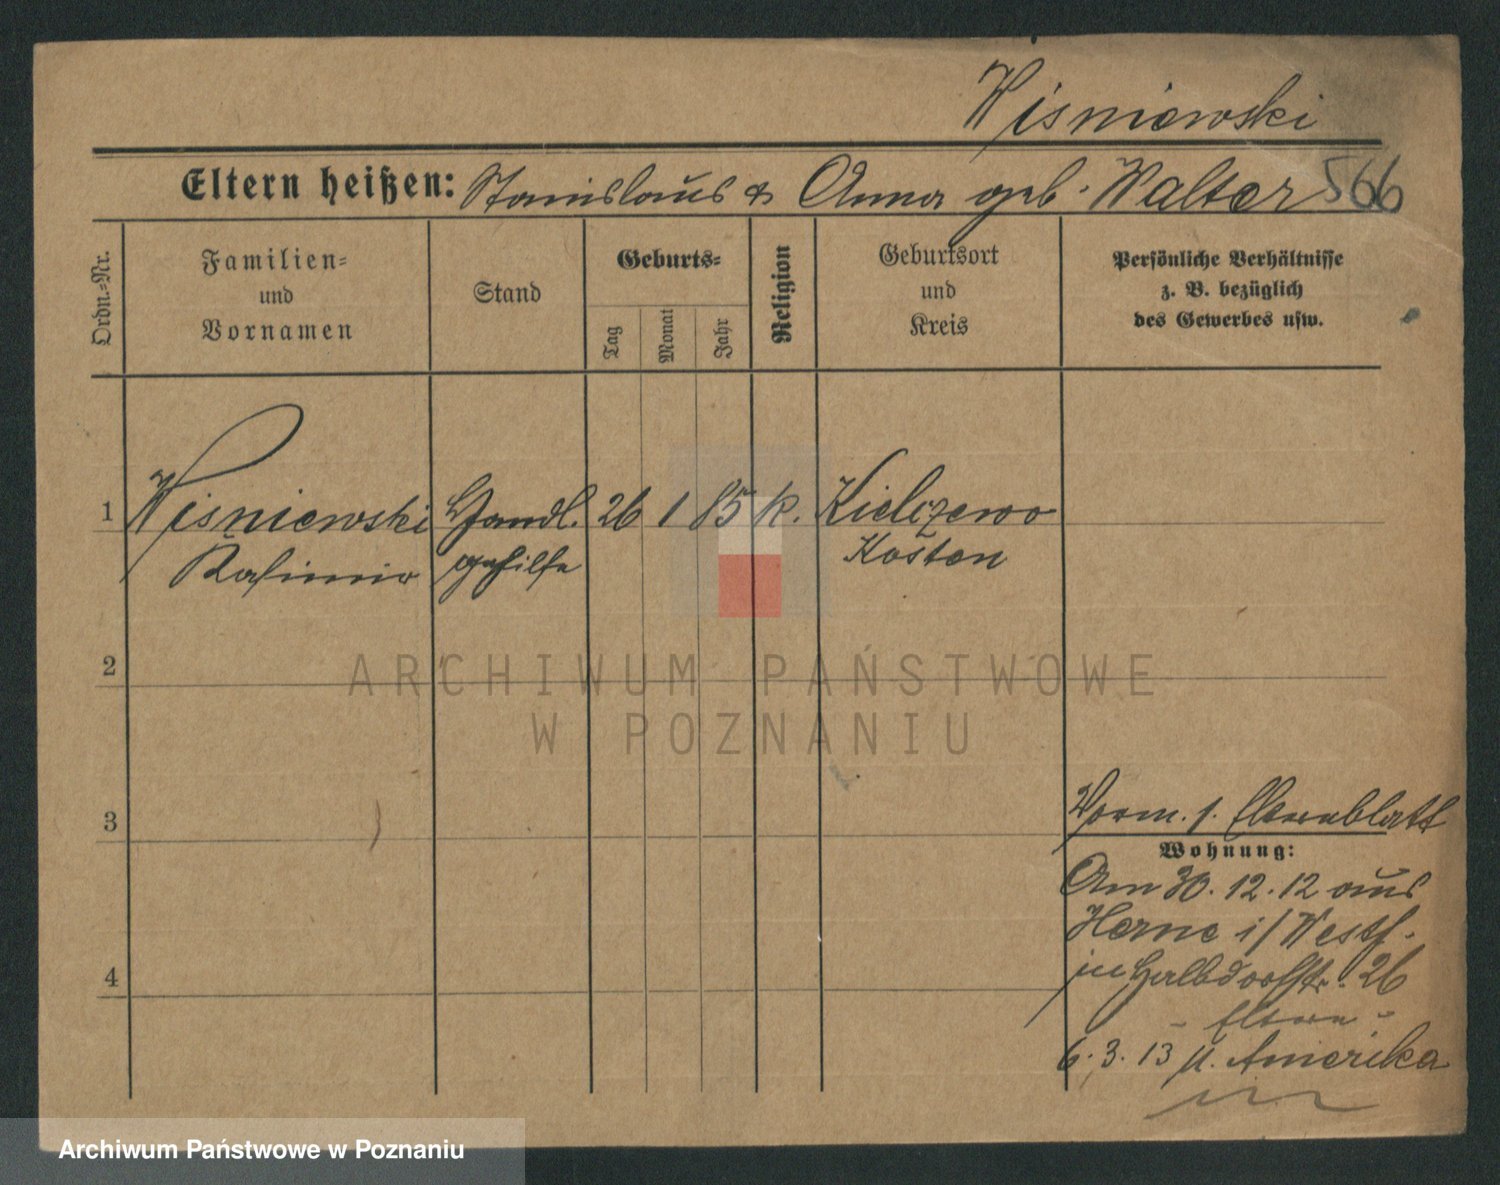 Wisniewski
Eltern heißen: Stanislaus & Anna geb. Walter 566
Ordn.-Nr.
Familien-
und
Vornamen
Stand
Geburts-
Tag
Monat
Jahr
Religion
Geburtsort
und
Kreis
Persönliche Verhältnisse
z. B. bezüglich
des Gewerbes usw.
1 Wisniewski Handl. 26 1 85 k. Kielczewo
Kasimir gehilfe Kosten
2
3
4
Vorm. s. Elternblatt
Wohnung:
Am 30.12.12 aus
Herne i/Westf.
in Halbdorfstr. 26
- Eltern -
6.3.13 n. Amerika
ARCHIWUM PAŃSTWOWE
W POZNANIU
Archiwum Państwowe w Poznaniu